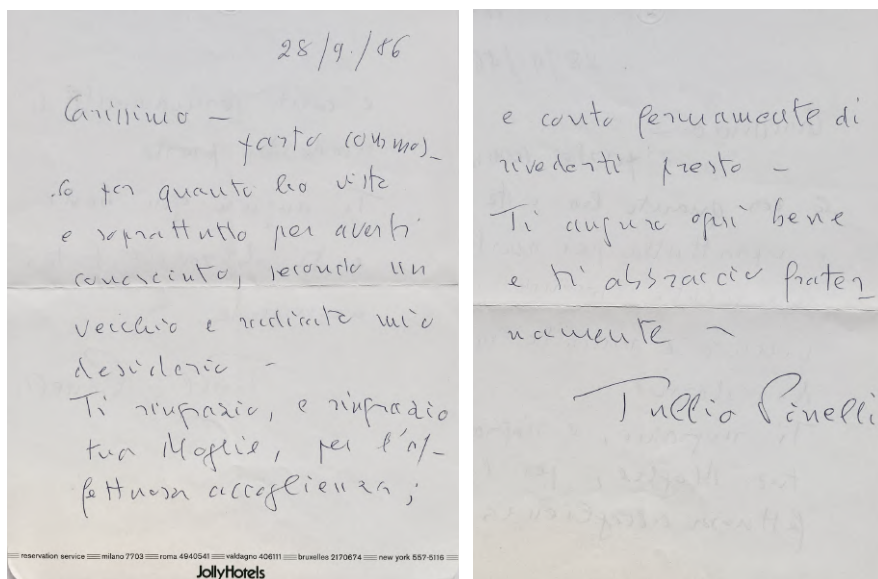 28/9./86
Carissimo —
parto commos_
so per quanto ho visto
e soprattutto per averti
conosciuto, secondo un
vecchio e radicato mio
desiderio —
Ti ringrazio, e ringrazio
tua Moglie, per l'af_
fettuosa accoglienza;
reservation service milano 7703 roma 4940541 valdagno 406111 bruxelles 2170674 new york 557-5116
JollyHotels
e conto fermamente di
rivederti presto —
Ti auguro ogni bene
e ti abbraccio frater_
namente —
Tullio Pinelli